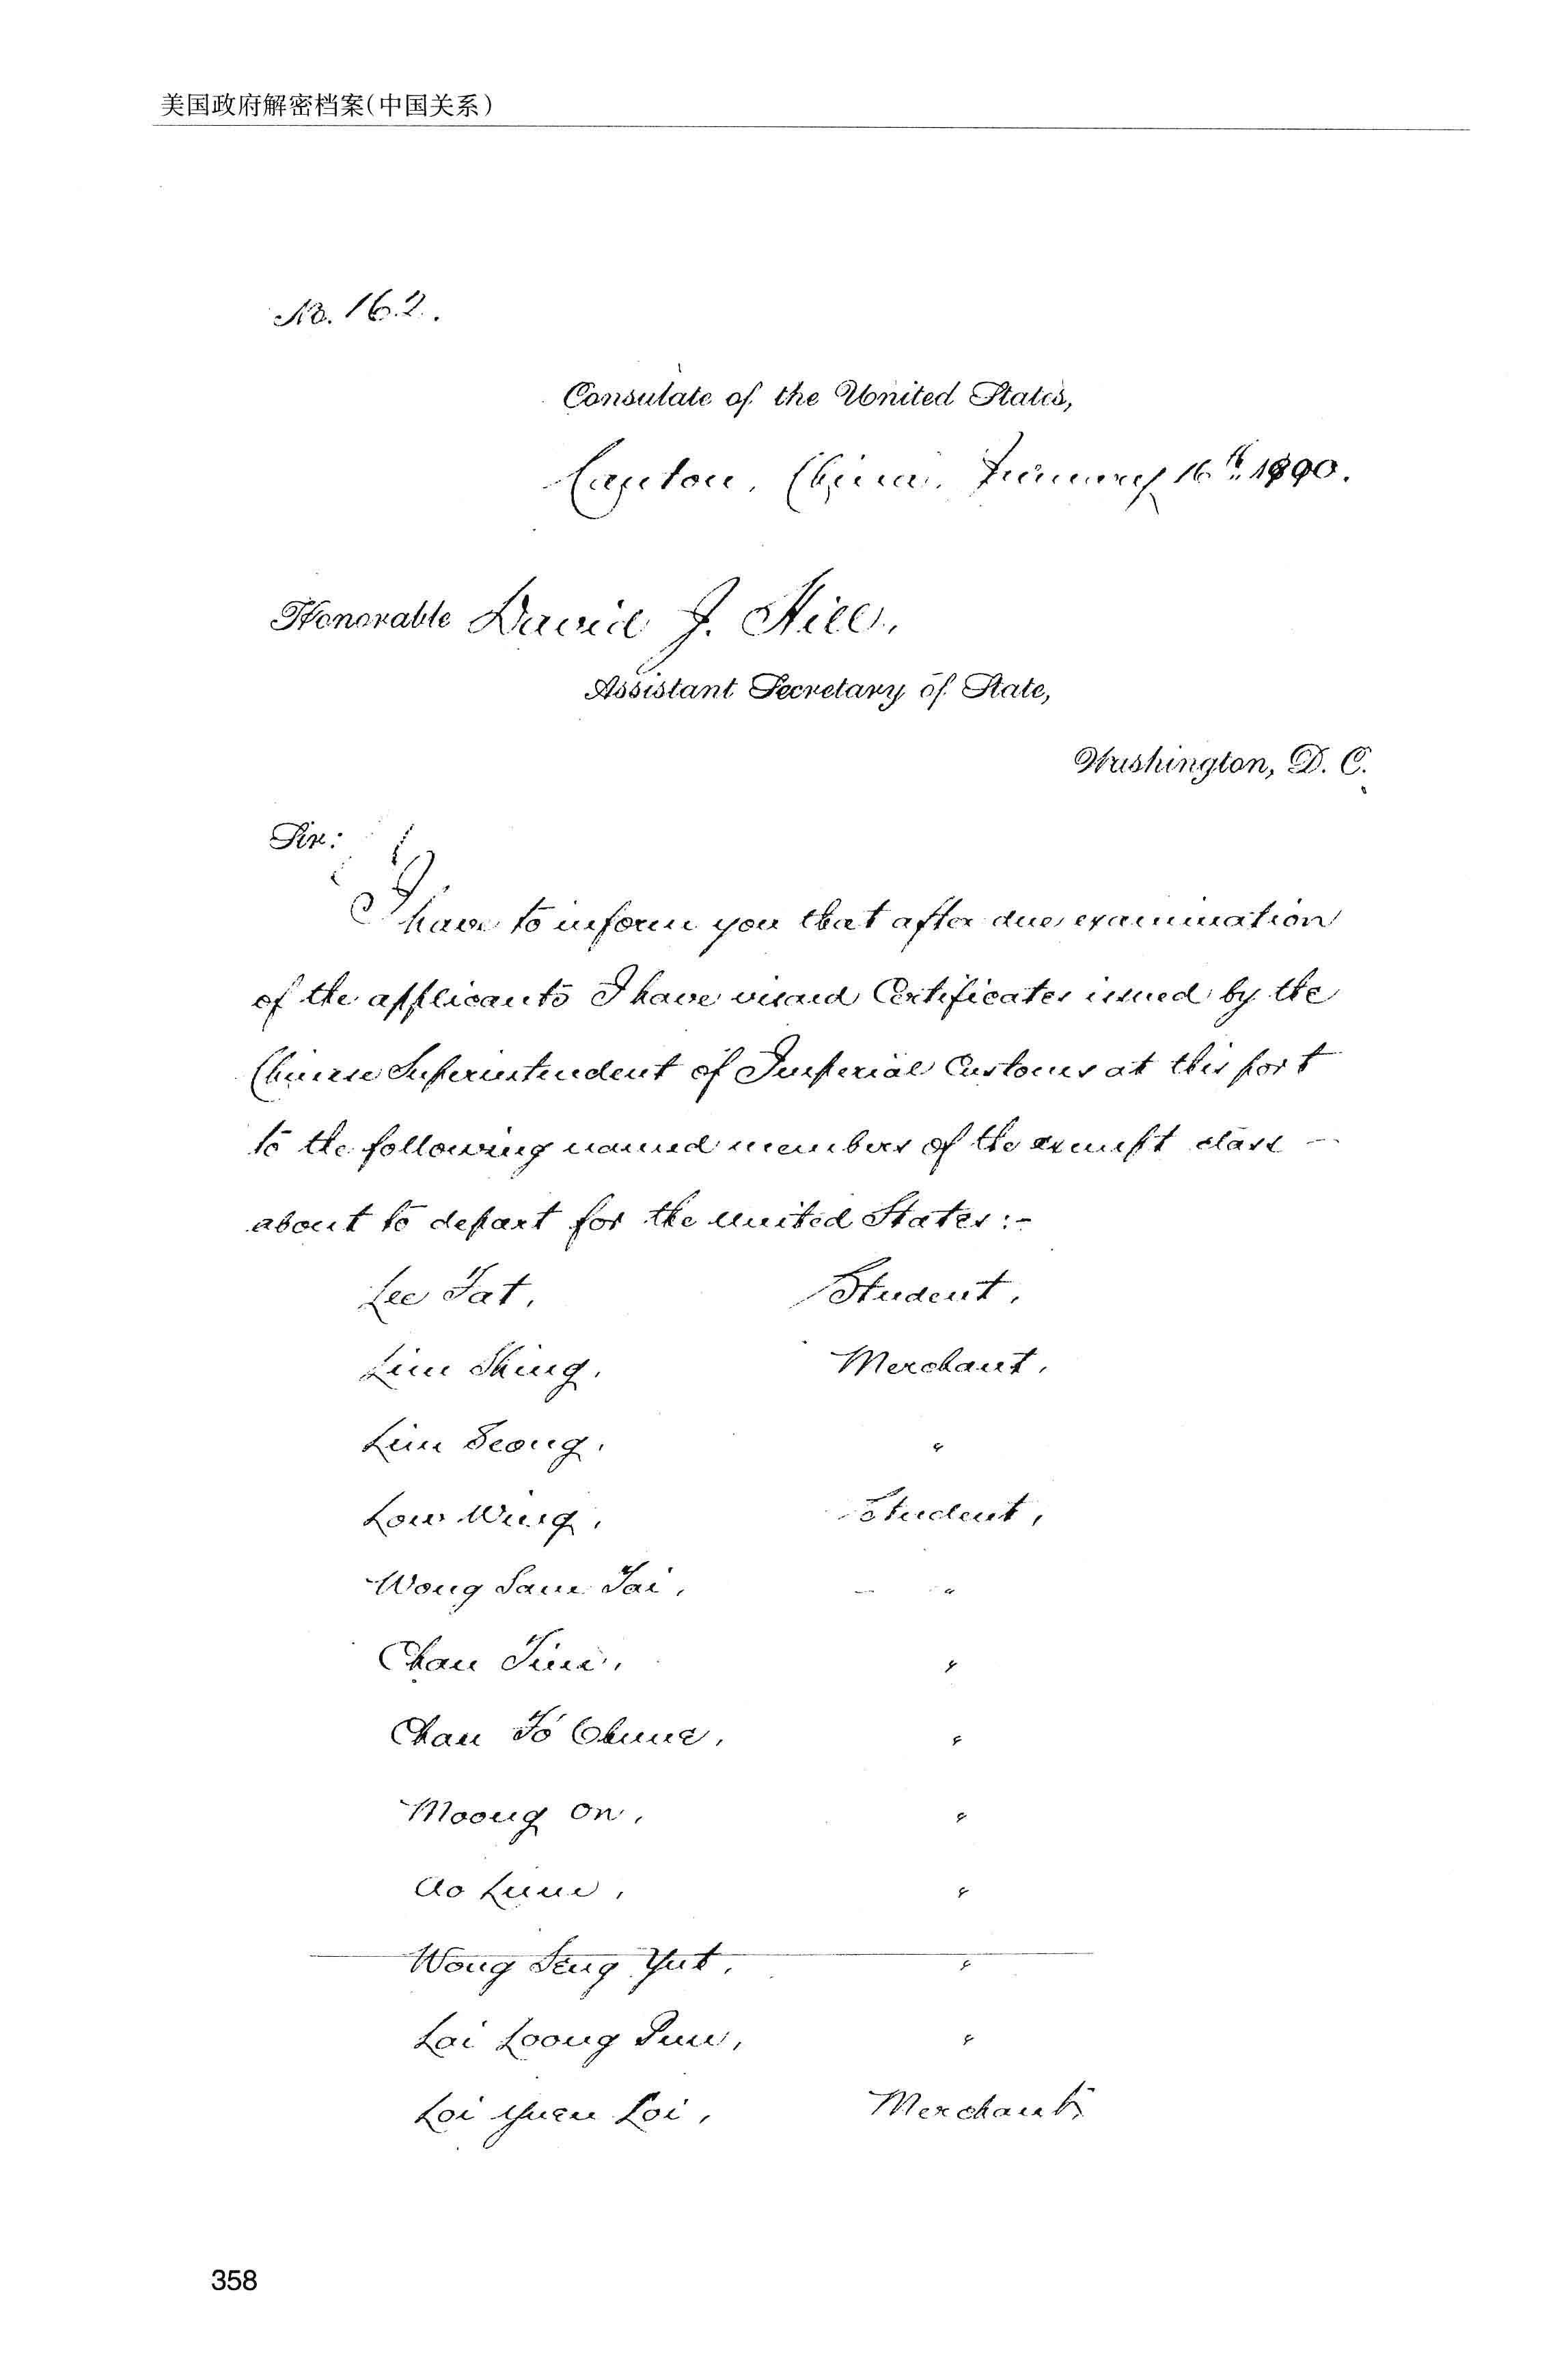 美国政府解密档案(中国关系)
No. 162.
Consulate of the United States,
Canton, China, January 16th 1890.
Honorable David J. Hill,
Assistant Secretary of State,
Washington, D. C.
Sir:
I have to inform you that after due examination
of the applicants I have visaid Certificates issued by the
Chinese Superintendent of Imperial Customs at this port
to the following named members of the exempt class —
about to depart for the United States:-
Lee Fat, Student,
Lim Shing, Merchant,
Lim Seong, "
Low Wing, Student,
Wong Sam Tai, "
Chan "
Chan To "
Moong On, "
Ao Lum, "
Wong Seng Yut, "
Lai Loong "
Loi Yuen Loi, Merchant,
358